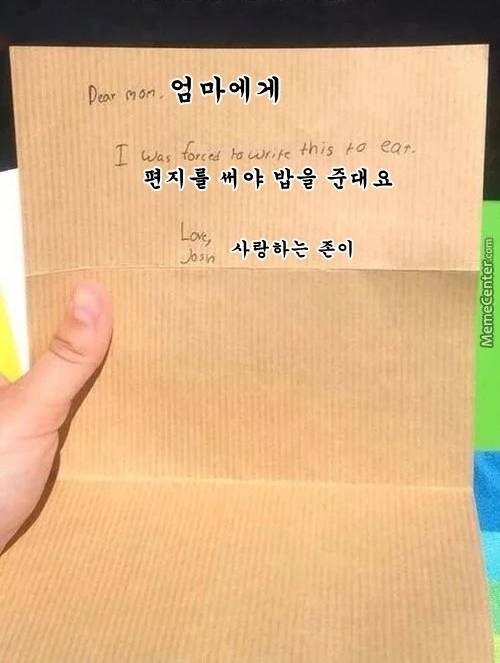 Dear mom, 엄마에게
I was forced to write this to eat.
편지를 써야 밥을 준대요
Love,
Josh 사랑하는 존이
MemeCenter.com